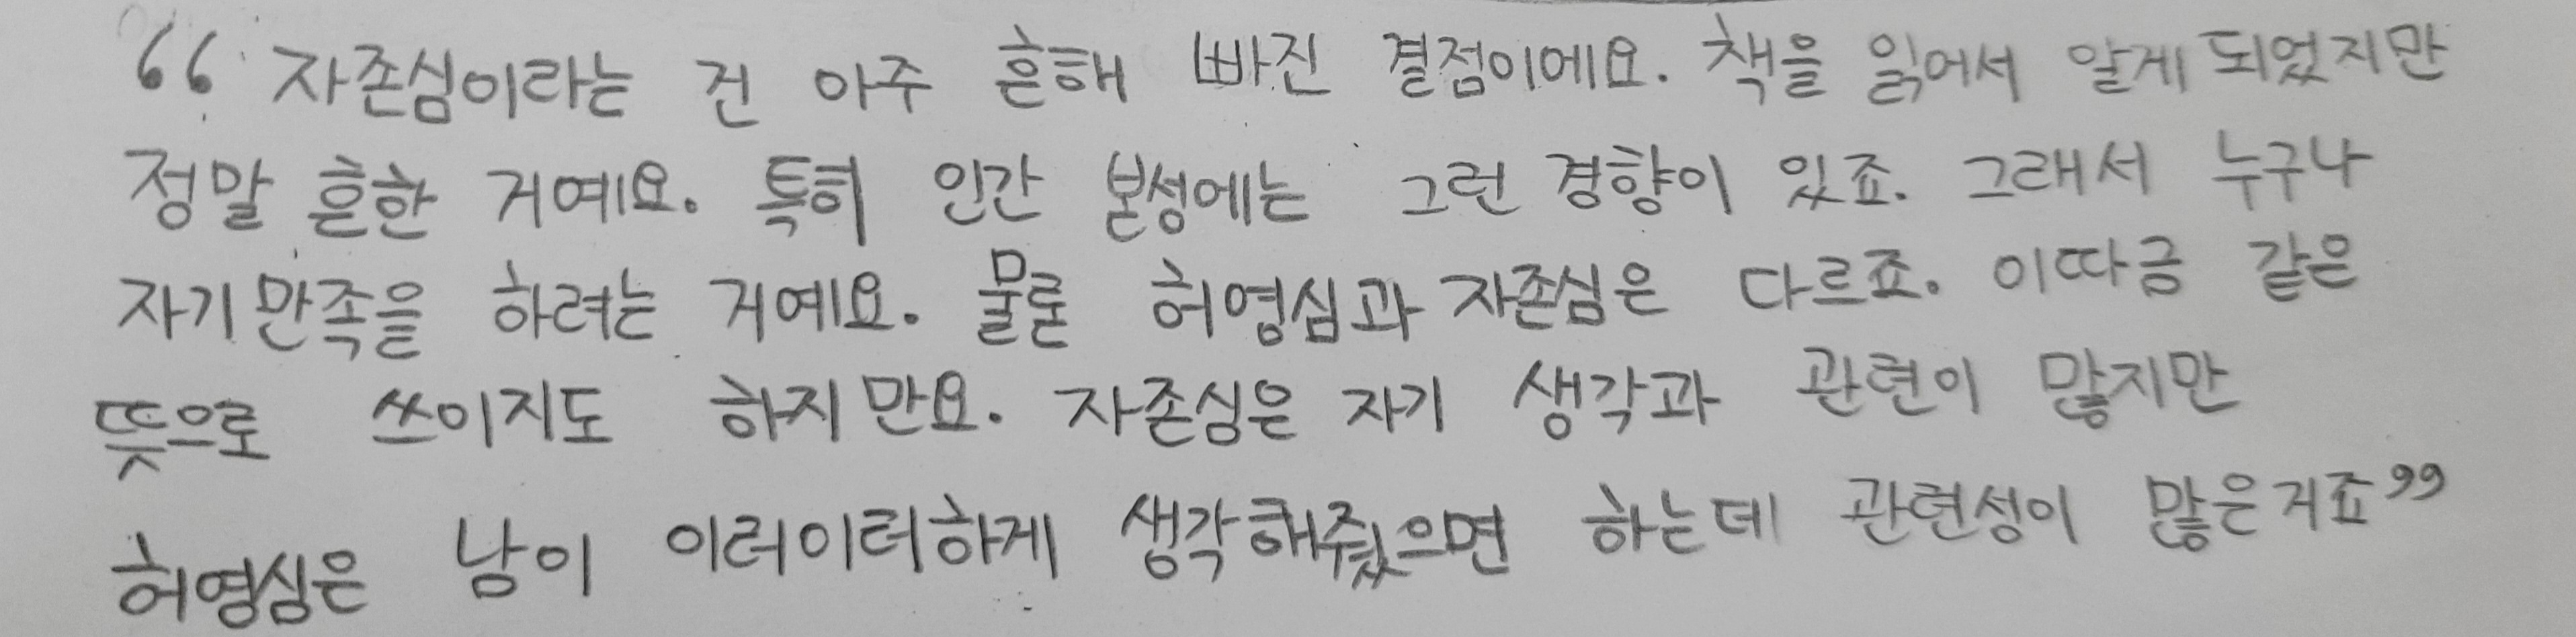 “ 자존심이라는 건 아주 흔해 빠진 결점이에요. 책을 읽어서 알게 되었지만
정말 흔한 거예요. 특히 인간 본성에는 그런 경향이 있죠. 그래서 누구나
자기만족을 하려는 거예요. 물론 허영심과 자존심은 다르죠. 이따금 같은
뜻으로 쓰이지도 하지만요. 자존심은 자기 생각과 관련이 많지만
허영심은 남이 이러이러하게 생각해줬으면 하는데 관련성이 많은거죠”